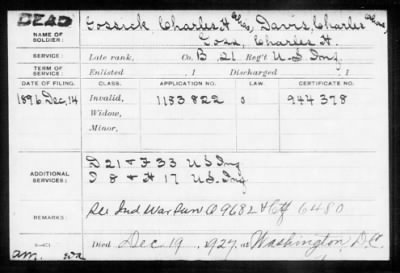 DEAD
NAME OF SOLDIER:
Gossick, Charles H. Alias, Davis, Charles Alias,
Goss, Charles H.
SERVICE:
Late rank, Co. B 21 Reg't U.S. Inf.
TERM OF SERVICE:
Enlisted , 1 Discharged , 1
DATE OF FILING. CLASS. APPLICATION NO. LAW. CERTIFICATE NO.
1896 Dec, 14 Invalid, 1183822 944378
Widow,
Minor,
ADDITIONAL SERVICES:
D 21 & F 33 U.S. Inf
I 8 & H 17 U.S. Inf
REMARKS:
See Ind War Surv O 9682 & Ctf 6480
Died Dec. 19, 1927, at Washington, D.C.